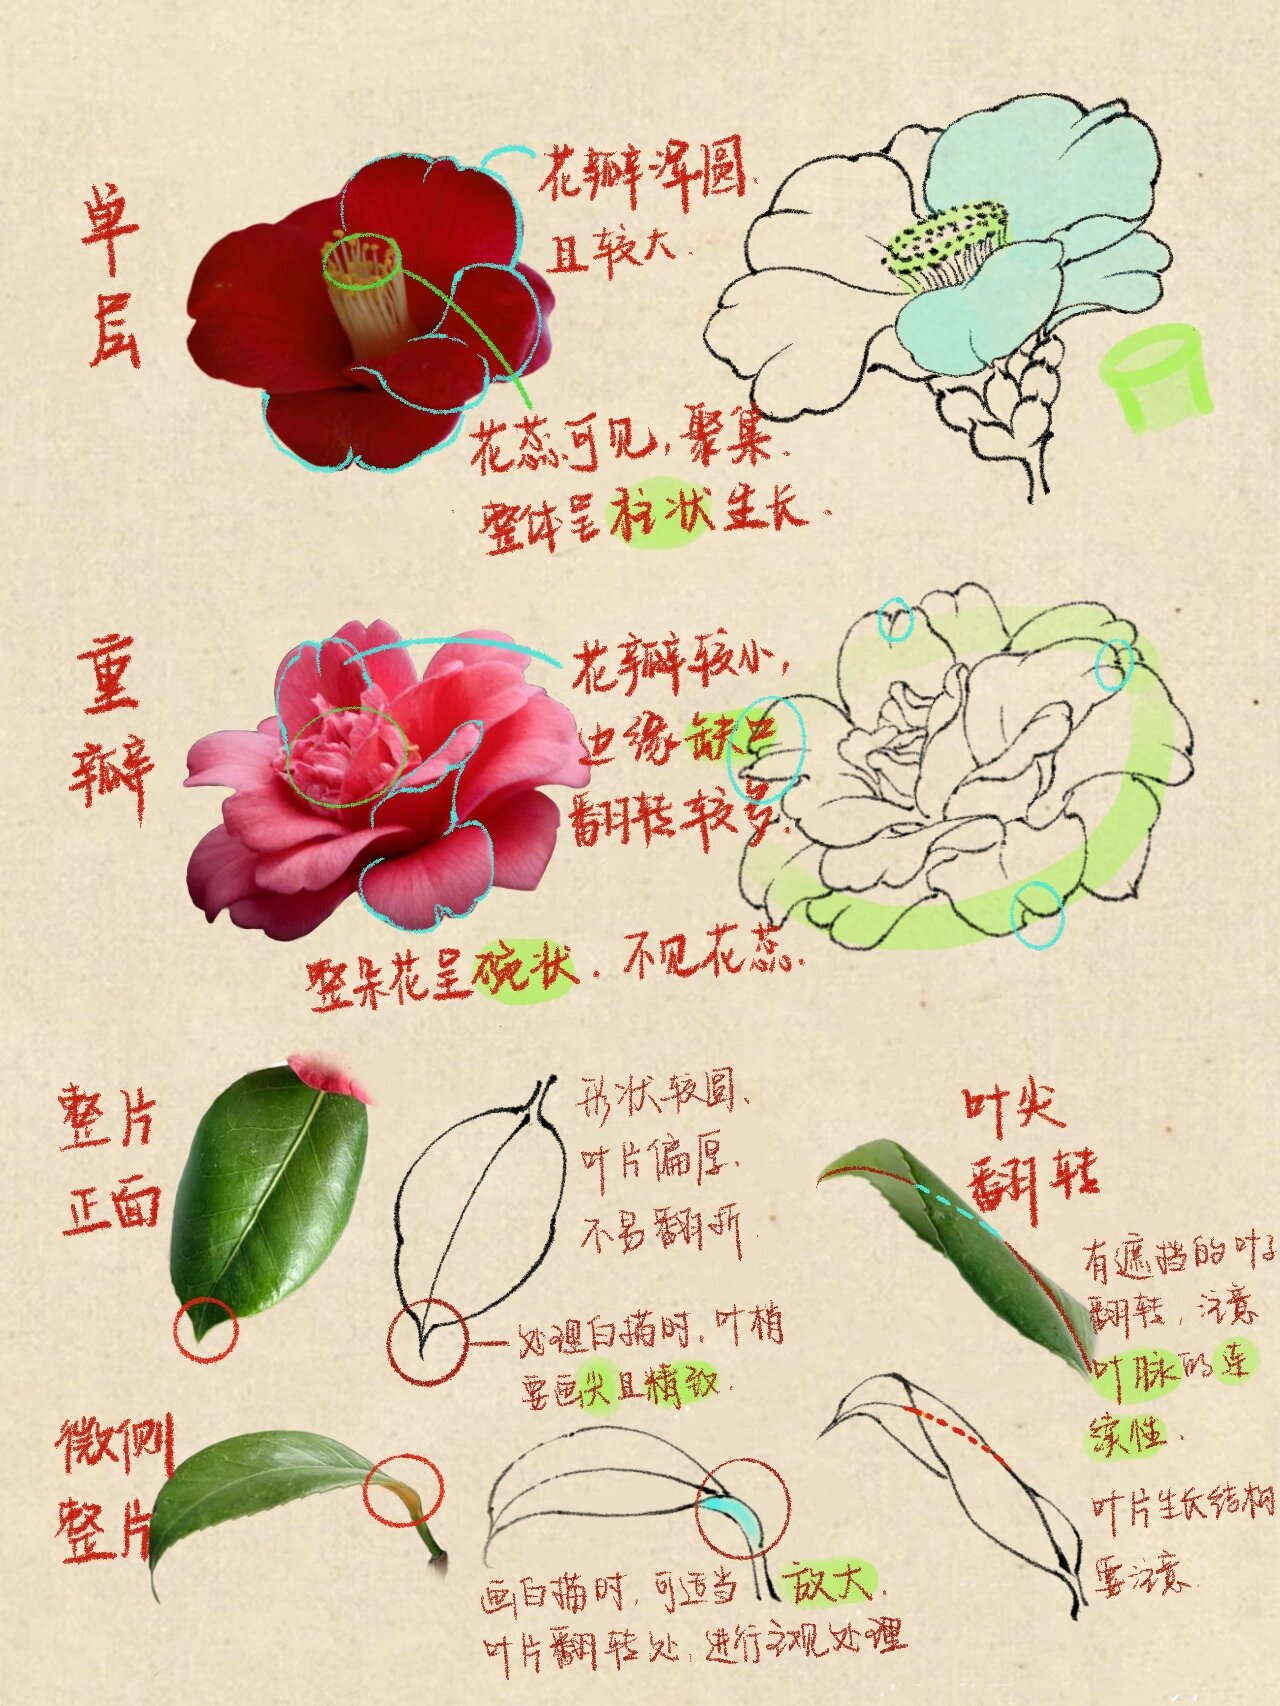 单层
花瓣浑圆.
且较大.
花蕊可见,聚集.
整体呈柱状生长.
重瓣
花瓣较小,
边缘缺口
翻转较多.
整朵花呈碗状.不见花蕊.
整片
正面
形状较圆.
叶片偏厚.
不易翻折.
处理白描时,叶梢
要画尖且精致.
叶尖
翻转
有遮挡的叶子
翻转,注意
叶脉的连
续性.
叶片生长结构
要注意.
微侧
整片
画白描时,可适当放大.
叶片翻转处,进行主观处理